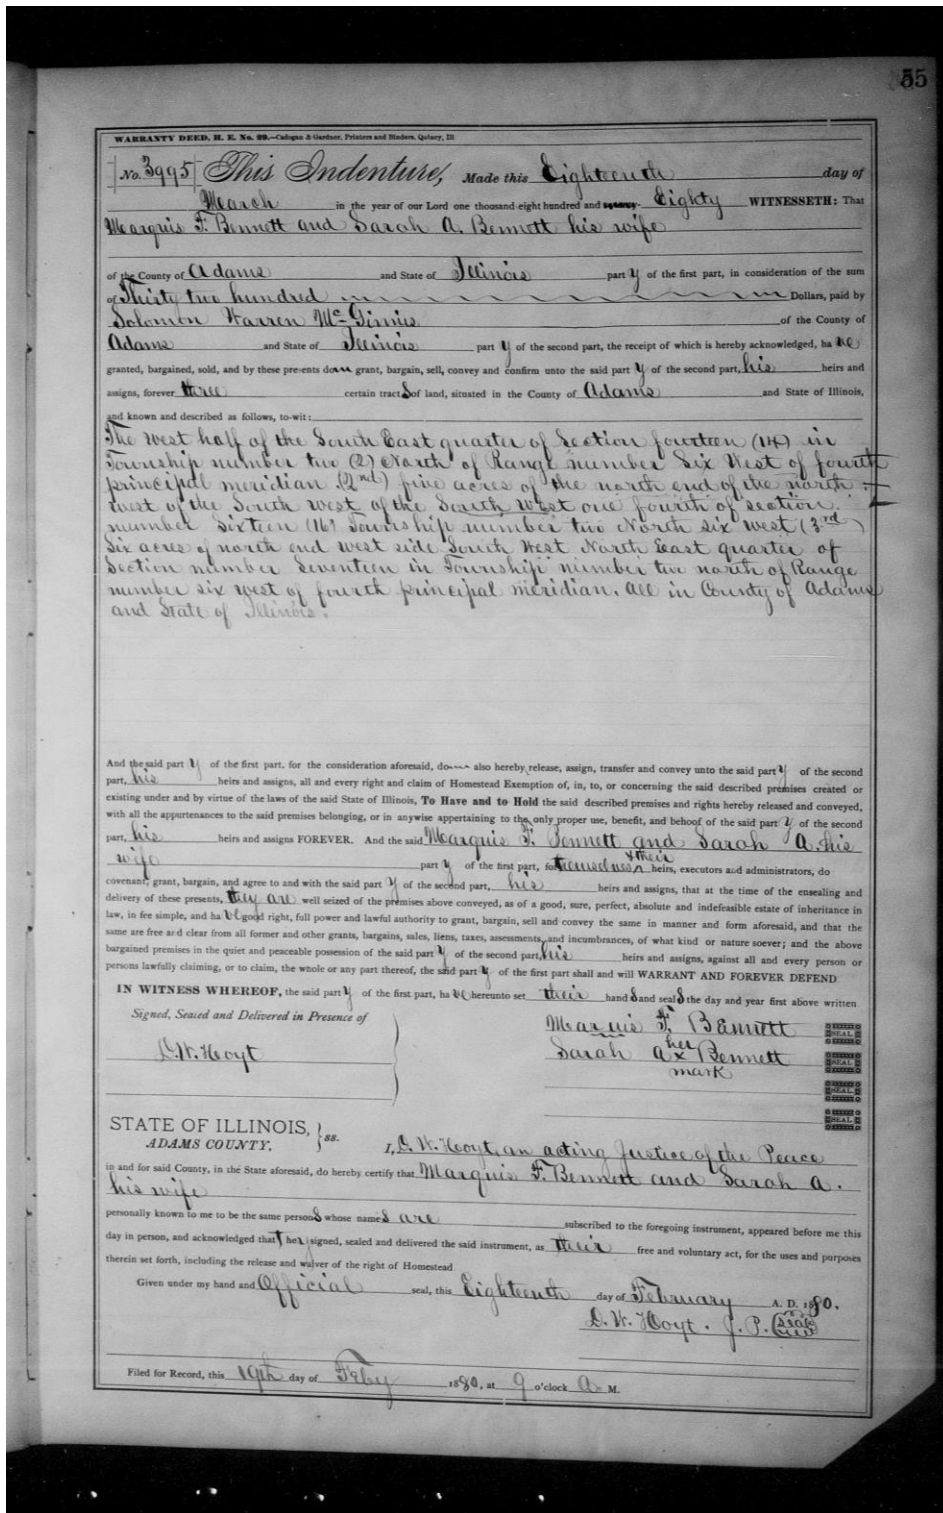 55
WARRANTY DEED, H. E. No. 99.—Cadogan & Gardner, Printers and Binders, Quincy, Ill
No. 3995 This Indenture, Made this Eighteenth day of
March in the year of our Lord one thousand eight hundred and Eighty WITNESSETH: That
Marquis F. Bennett and Sarah A. Bennett his wife
of the County of Adams and State of Illinois party of the first part, in consideration of the sum
of Thirty two hundred Dollars, paid by
Solomon Warren McGinnis of the County of
Adams and State of Illinois party of the second part, the receipt of which is hereby acknowledged, have
granted, bargained, sold, and by these presents do grant, bargain, sell, convey and confirm unto the said party of the second part, his heirs and
assigns, forever three certain tracts of land, situated in the County of Adams and State of Illinois,
and known and described as follows, to-wit:
The West half of the South East quarter of Section fourteen (14) in
Township number two (2) North of Range number Six West of fourth
principal meridian. (2nd) five acres of the north end of the north
west of the South west of the South West one fourth of section
number Sixteen (16) Township number two North six west (3rd)
Six acres of north end west side South West North East quarter of
Section number Seventeen in Township number two north of Range
number six west of fourth principal meridian. all in County of Adams
and State of Illinois.
And the said party of the first part, for the consideration aforesaid, do also hereby release, assign, transfer and convey unto the said party of the second
part, his heirs and assigns, all and every right and claim of Homestead Exemption of, in, to, or concerning the said described premises created or
existing under and by virtue of the laws of the said State of Illinois, To Have and to Hold the said described premises and rights hereby released and conveyed,
with all the appurtenances to the said premises belonging, or in anywise appertaining to the only proper use, benefit, and behoof of the said party of the second
part, his heirs and assigns FOREVER. And the said Marquis F. Bennett and Sarah A. his
wife party of the first part, for themselves & their heirs, executors and administrators, do
covenant, grant, bargain, and agree to and with the said party of the second part, his heirs and assigns, that at the time of the ensealing and
delivery of these presents, they are well seized of the premises above conveyed, as of a good, sure, perfect, absolute and indefeasible estate of inheritance in
law, in fee simple, and have good right, full power and lawful authority to grant, bargain, sell and convey the same in manner and form aforesaid, and that the
same are free and clear from all former and other grants, bargains, sales, liens, taxes, assessments, and incumbrances, of what kind or nature soever; and the above
bargained premises in the quiet and peaceable possession of the said party of the second part, his heirs and assigns, against all and every person or
persons lawfully claiming, or to claim, the whole or any part thereof, the said party of the first part shall and will WARRANT AND FOREVER DEFEND
IN WITNESS WHEREOF, the said party of the first part, have hereunto set their hands and seals the day and year first above written
Signed, Sealed and Delivered in Presence of
D. W. Hoyt
Marquis F. Bennett SEAL
Sarah A her x mark Bennett SEAL
SEAL
SEAL
STATE OF ILLINOIS,
ADAMS COUNTY. } ss. I, D. W. Hoyt, an acting Justice of the Peace
in and for said County, in the State aforesaid, do hereby certify that Marquis F. Bennett and Sarah A.
his wife
personally known to me to be the same persons whose names are subscribed to the foregoing instrument, appeared before me this
day in person, and acknowledged that they signed, sealed and delivered the said instrument, as their free and voluntary act, for the uses and purposes
therein set forth, including the release and waiver of the right of Homestead
Given under my hand and Official seal, this Eighteenth day of February A. D. 1880.
D. W. Hoyt. J. P.
Filed for Record, this 19th day of Feby 1880, at 9 o'clock A M.